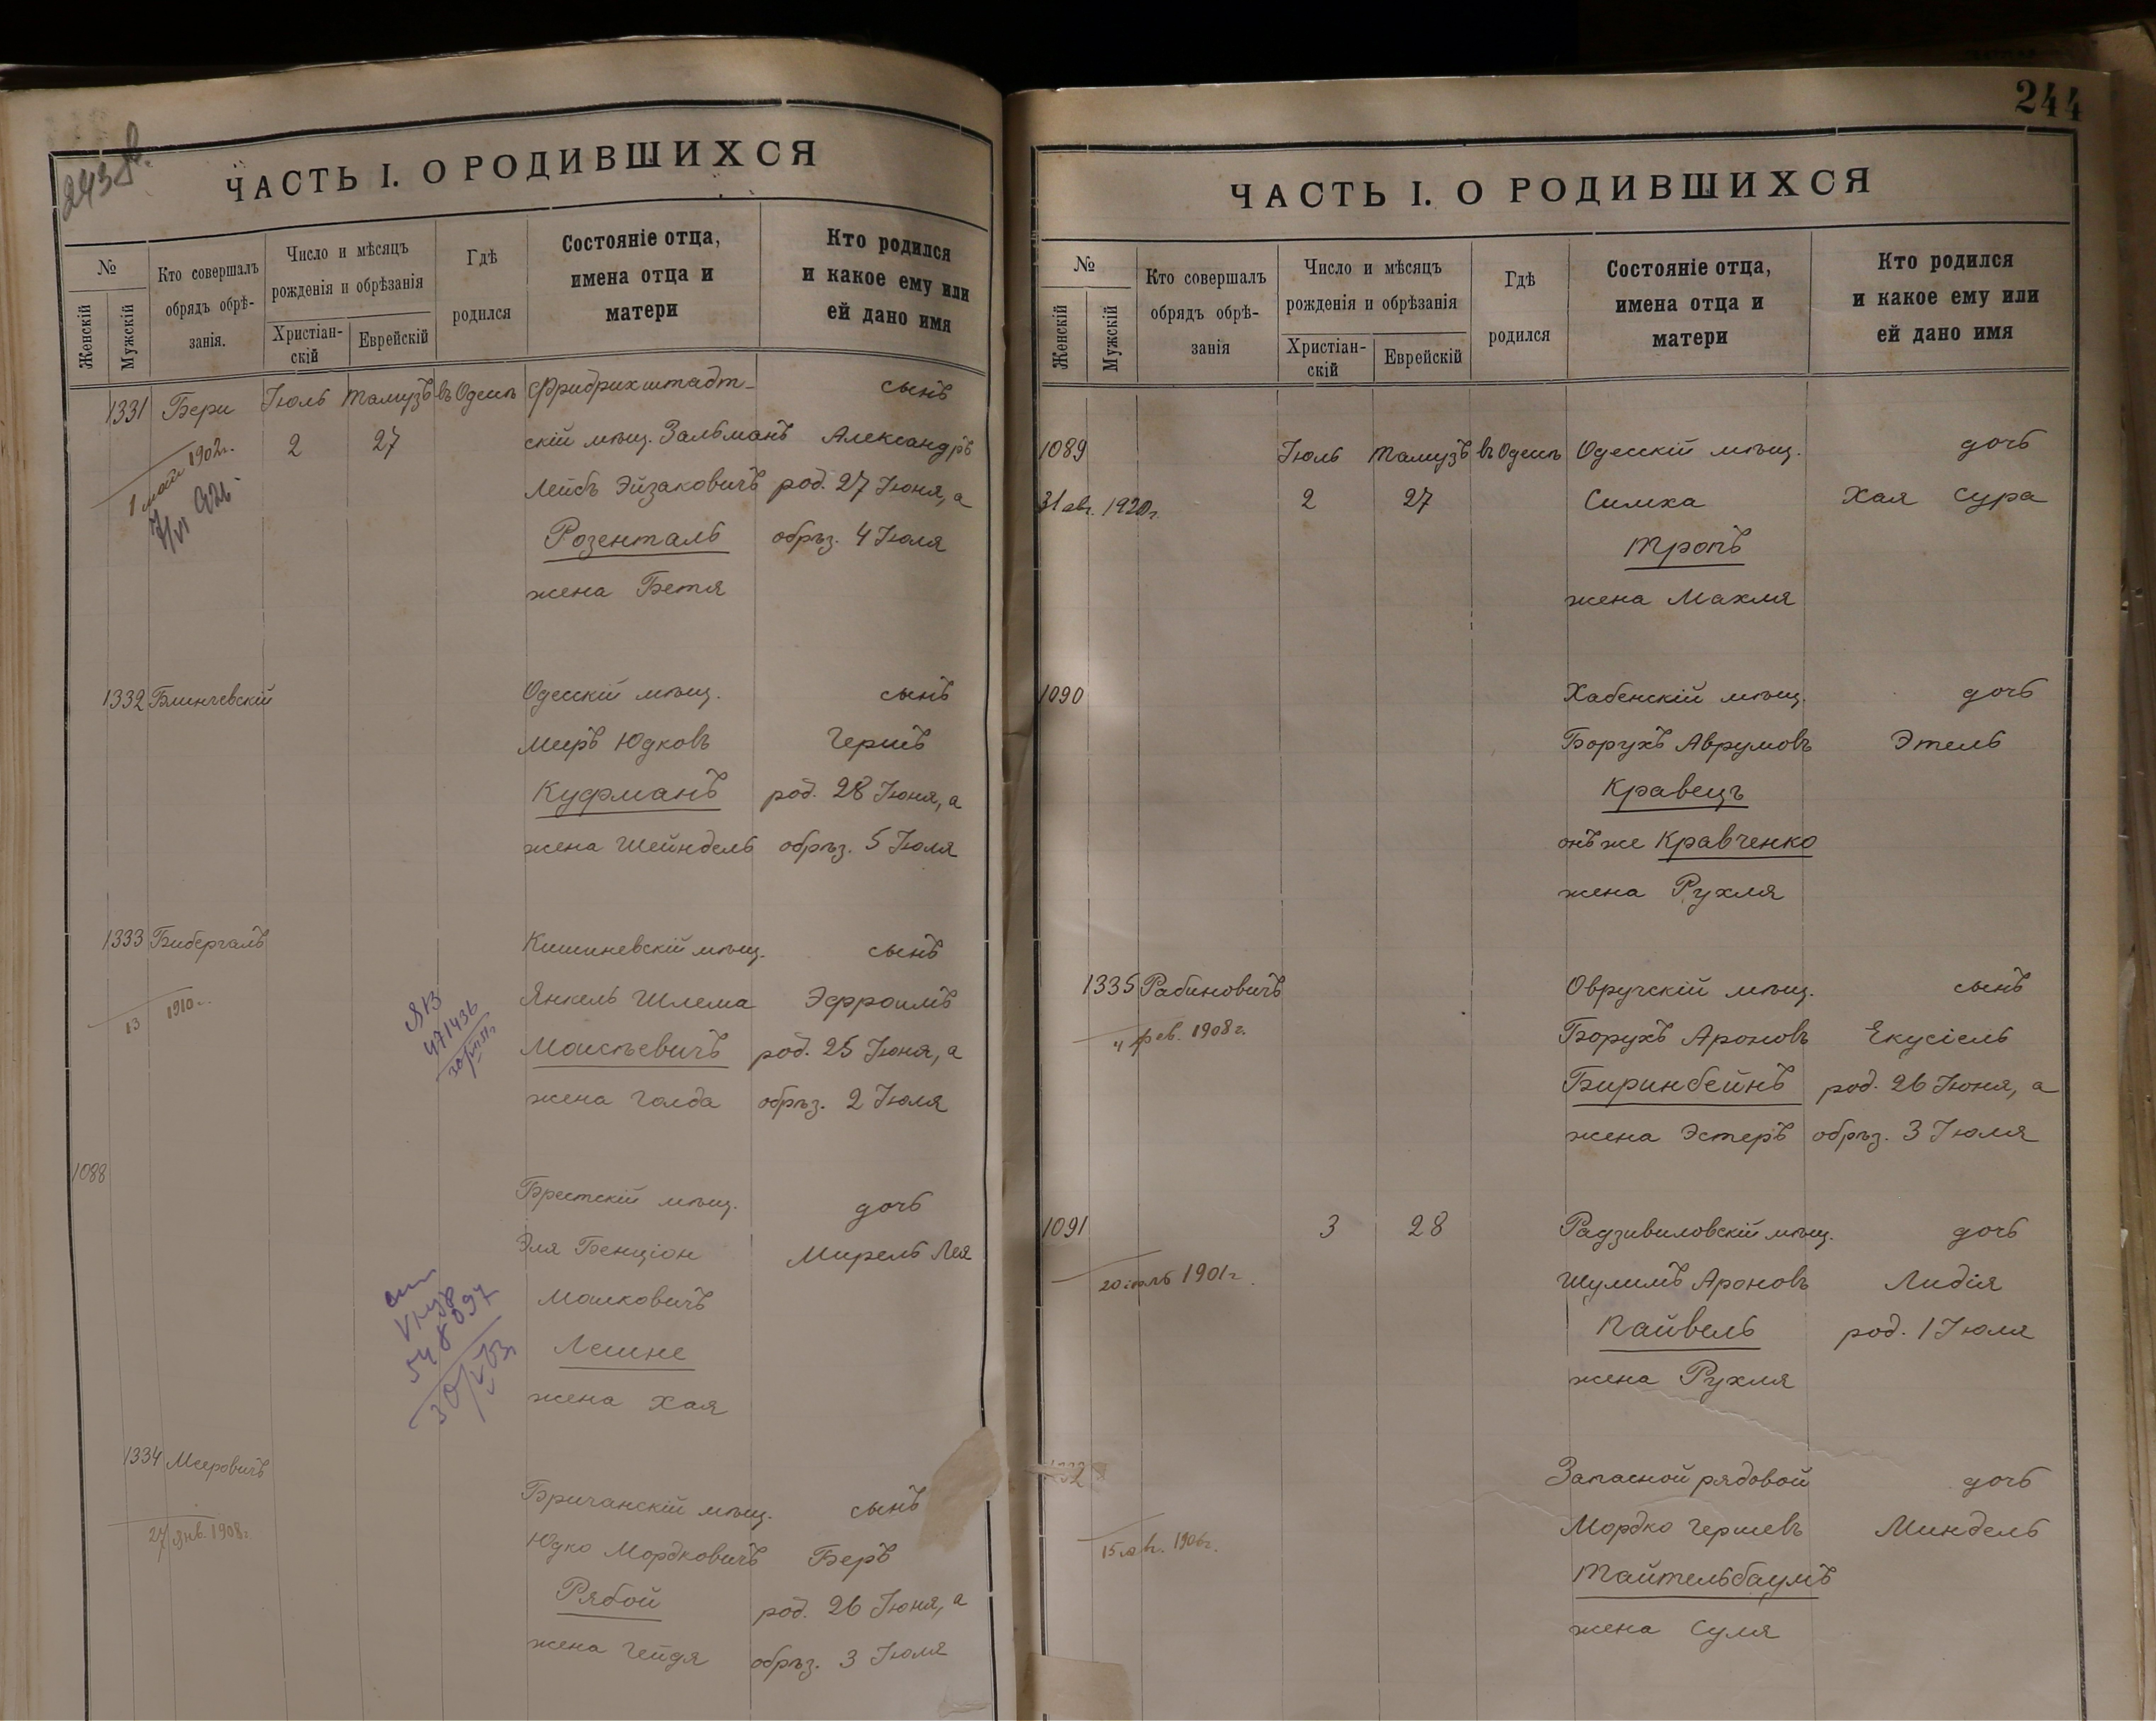 243 об.
ЧАСТЬ I. О РОДИВШИХСЯ
№
Женскій
Мужскій
Кто совершалъ
обрядъ обрѣ-
занія.
Число и мѣсяцъ
рожденія и обрѣзанія
Христіан-
скій
Еврейскій
Гдѣ
родился
Состояніе отца,
имена отца и
матери
Кто родился
и какое ему или
ей дано имя
1331 Бери Іюль Тамузъ въ Одессѣ Фридрихштадт- сынъ
2 27 скій мѣщ. Зальманъ Александръ
1 мая 1902г.
Лейбъ Эйзаковичъ род. 27 Іюня, а
Розенталь обрѣз. 4 Іюля
жена Бетя
1332 Блинчевскій Одесскій мѣщ. сынъ
Меиръ Юдковъ Гершъ
Куфманъ род. 28 Іюня, а
жена Шейндель обрѣз. 5 Іюля
1333 Бибергалъ Кишиневскій мѣщ. сынъ
13 1910
Янкель Шлема Эфроимъ
471436
Моисѣевичъ род. 25 Іюня, а
жена Голда обрѣз. 2 Іюля
1088 Брестскій мѣщ. дочь
Эля Бенціон Мирель Лея
548097
Малковичъ
Лешне
жена Хая
1334 Мееровичъ
27 янв. 1908г.
Бричанскій мѣщ. сынъ
Юдко Мордковичъ Беръ
Рябой род. 26 Іюня, а
жена Гейдя обрѣз. 3 Іюля
244
ЧАСТЬ I. О РОДИВШИХСЯ
№
Женскій
Мужскій
Кто совершалъ
обрядъ обрѣ-
занія
Число и мѣсяцъ
рожденія и обрѣзанія
Христіан-
скій
Еврейскій
Гдѣ
родился
Состояніе отца,
имена отца и
матери
Кто родился
и какое ему или
ей дано имя
1089 Іюль Тамузъ въ Одессѣ Одесскій мѣщ. дочь
31 авг. 1920г. 2 27 Симха Хая Сура
Тропъ
жена Махля
1090 Хабенскій мѣщ. дочь
Борухъ Аврумовъ Этель
Кравецъ
онъ же Кравченко
жена Рухля
1335 Рабиновичъ Овручскій мѣщ. сынъ
4 фев. 1908г. Борухъ Ароновъ Екусіель
Биринбейнъ род. 26 Іюня, а
жена Эстеръ обрѣз. 3 Іюля
1091 3 28 Радзивиловскій мѣщ. дочь
20 іюль 1901г. Шулимъ Ароновъ Лидія
Пайвель род. 1 Іюля
жена Рухля
Запасной рядовой дочь
15 1906г. Мордко Гершевъ Миндель
Тайтельбаумъ
жена Суля